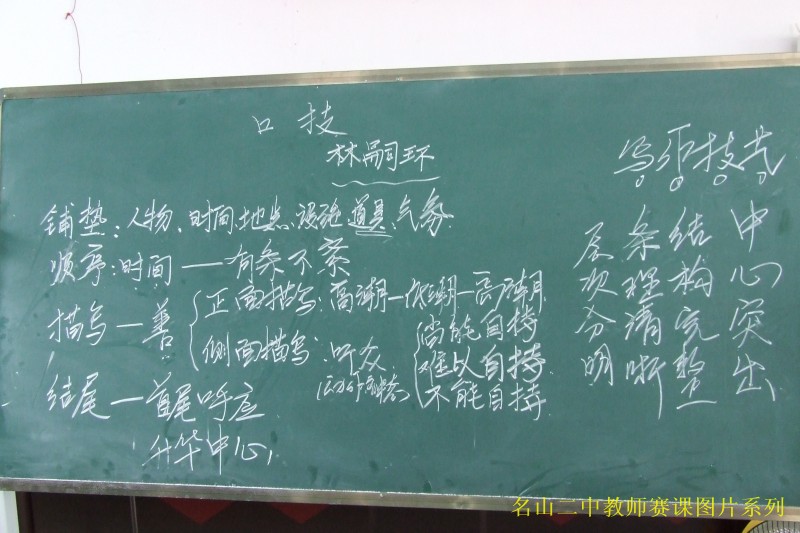 口技
林嗣环
铺垫：人物、时间、地点、设施、道具、气氛
顺序：时间——有条不紊
描写—善
正面描写：高潮—低潮—高潮
侧面描写：听众
尚能自持
难以自持
不能自持
结尾—首尾呼应
升华中心
写作技艺
中心突出
结构完整
条理清晰
层次分明
名山二中教师赛课图片系列